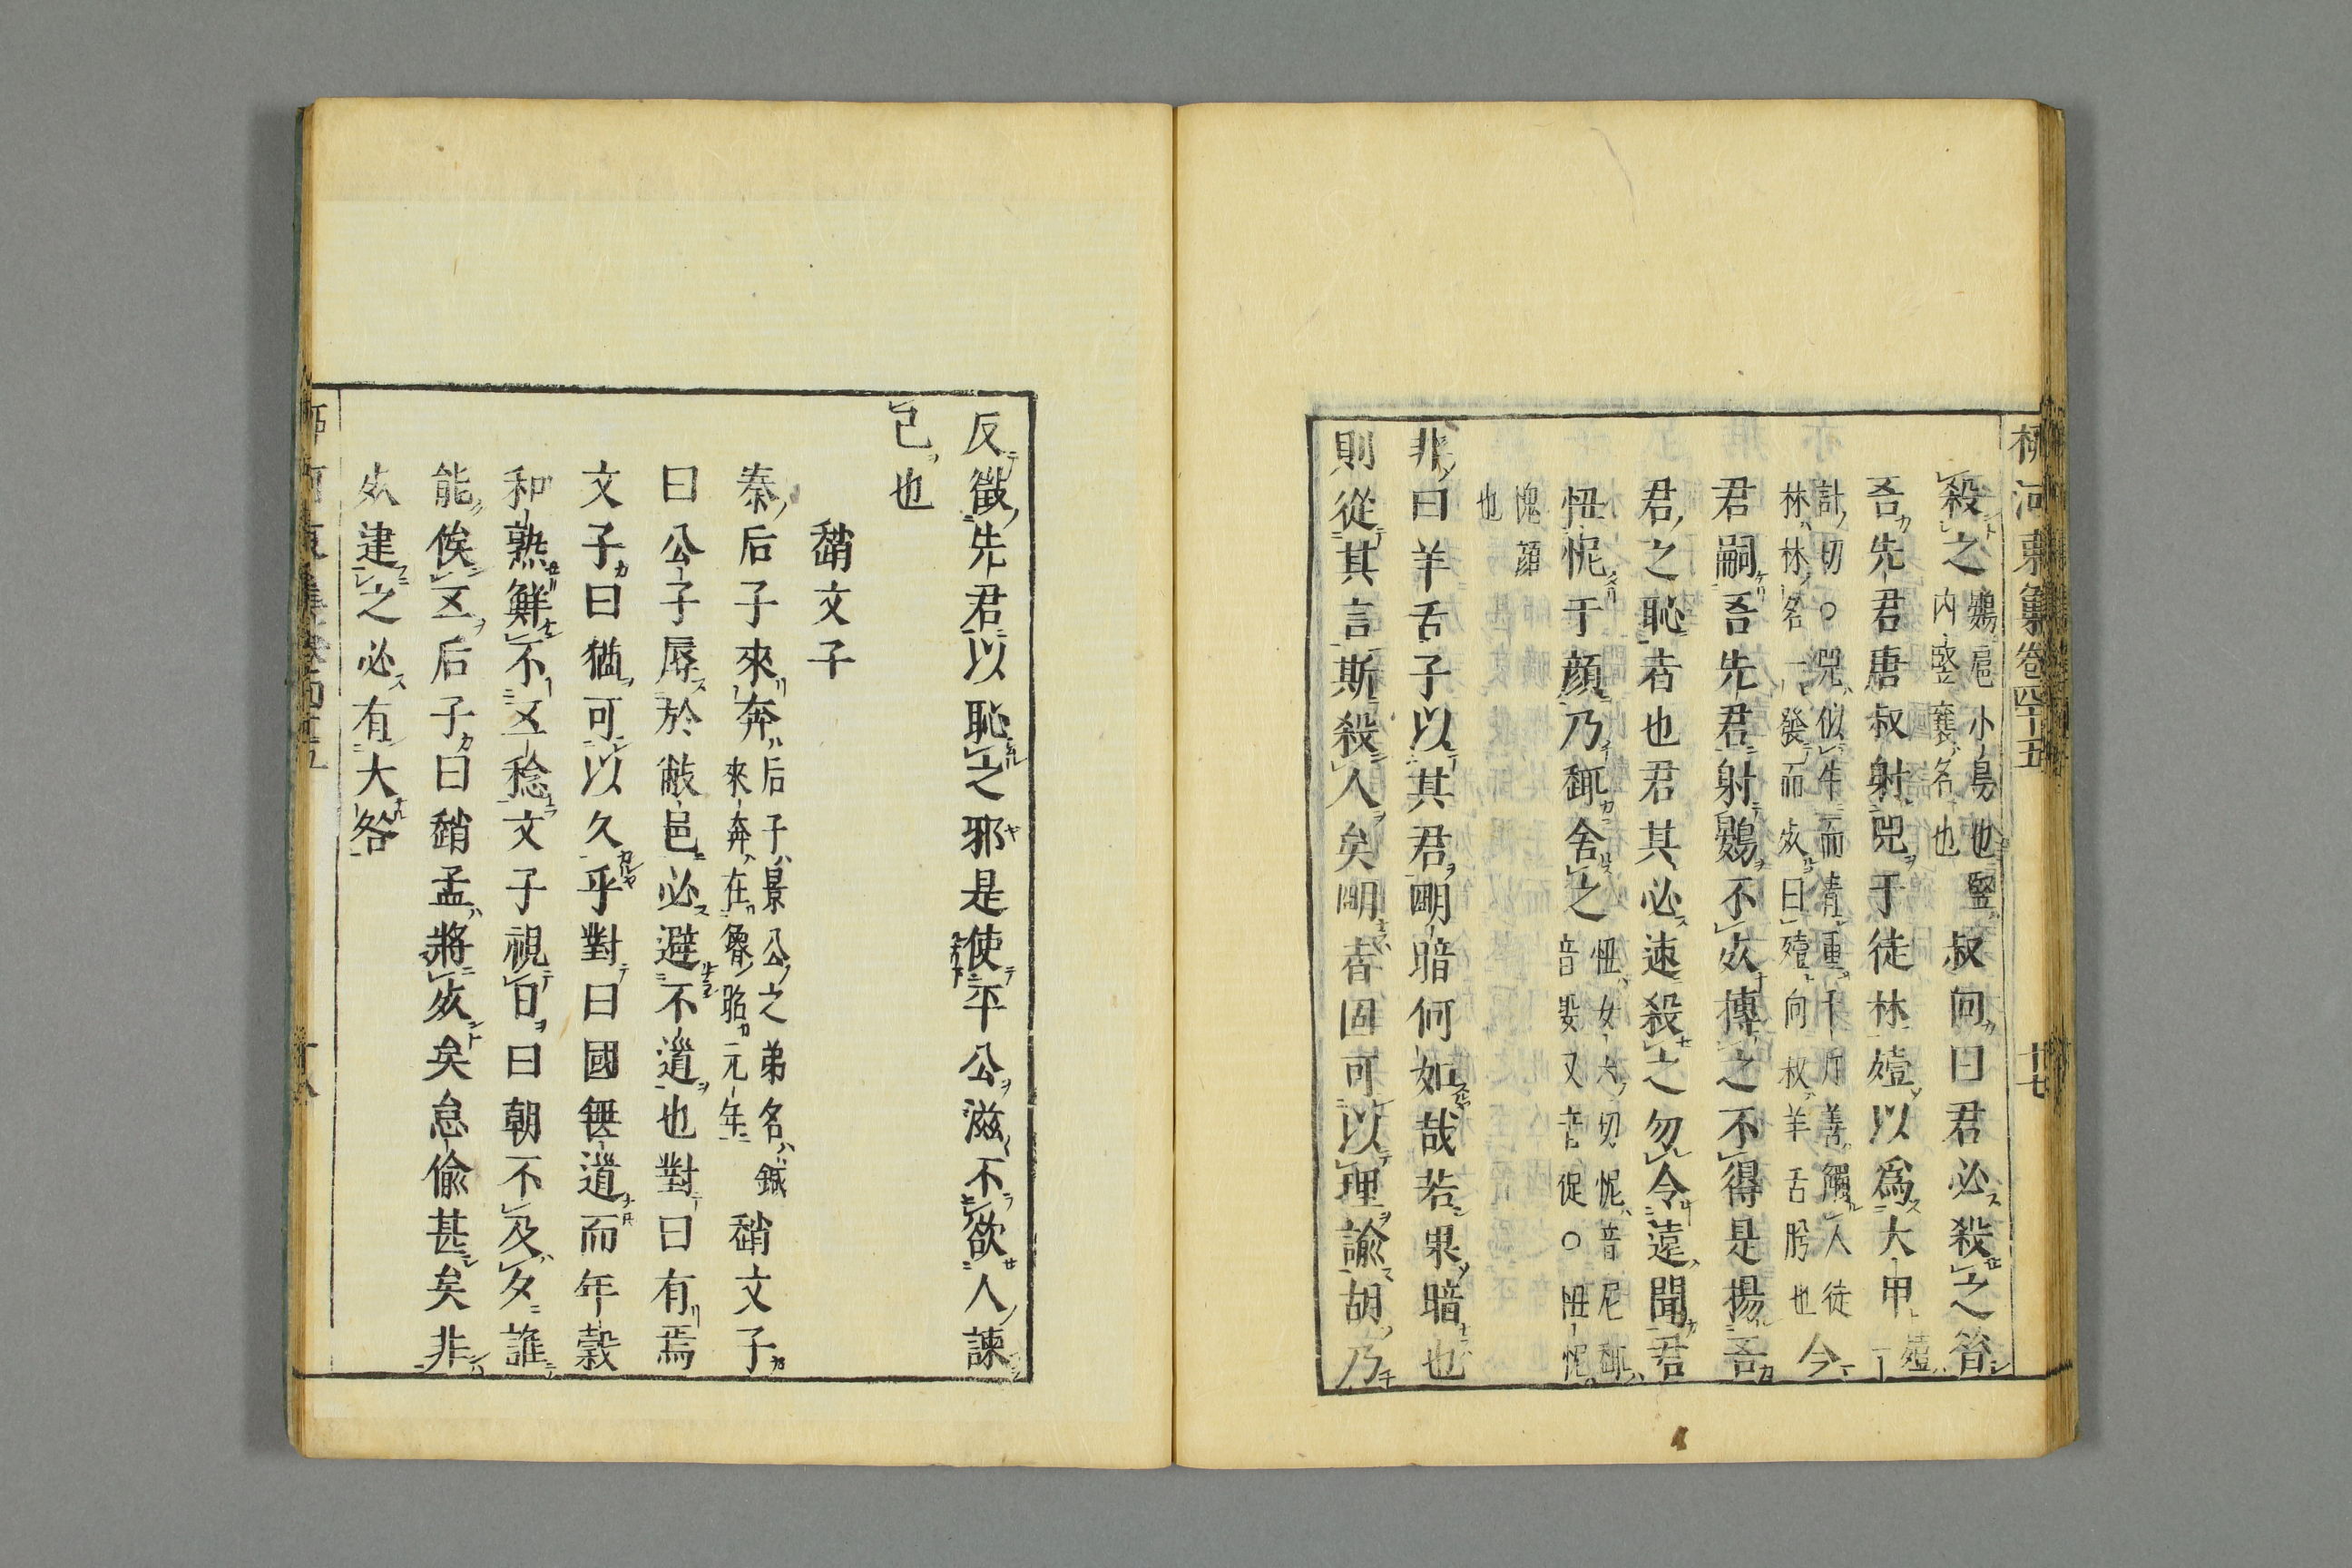 柳河東集卷四十五 十七
殺之鴳鳸小鳥也豎內豎襄名也叔向曰君必殺之昝
吾先君唐叔射兕于徒林殪以為大甲殪
計切○兕似牛而青重千斤善觸人徒林林名一發而死曰殪向叔羊舌肸也今
君嗣吾先君射鴳不死搏之不得是揚吾
君之恥者也君其必速殺之勿令遠聞君
忸怩于顏乃輒舍之忸女六切怩音尼輒音輙又音促○忸怩
愧顏也
非曰羊舌子以其君明暗何如哉若果暗也
則從其言斯殺人矣明者固可以理諭胡乃
反徵先君以恥之邪是使平公滋不欲人諫
己也
趙文子
秦后子來奔后子景公之弟名鍼來奔在魯昭元年趙文子
曰公子辱於敝邑必避不道也對曰有焉
文子曰猶可以久乎對曰國無道而年穀
和熟鮮不五稔文子視日曰朝不及夕誰
能俟五后子曰趙孟將死矣怠偷甚矣非
死逮之必有大咎